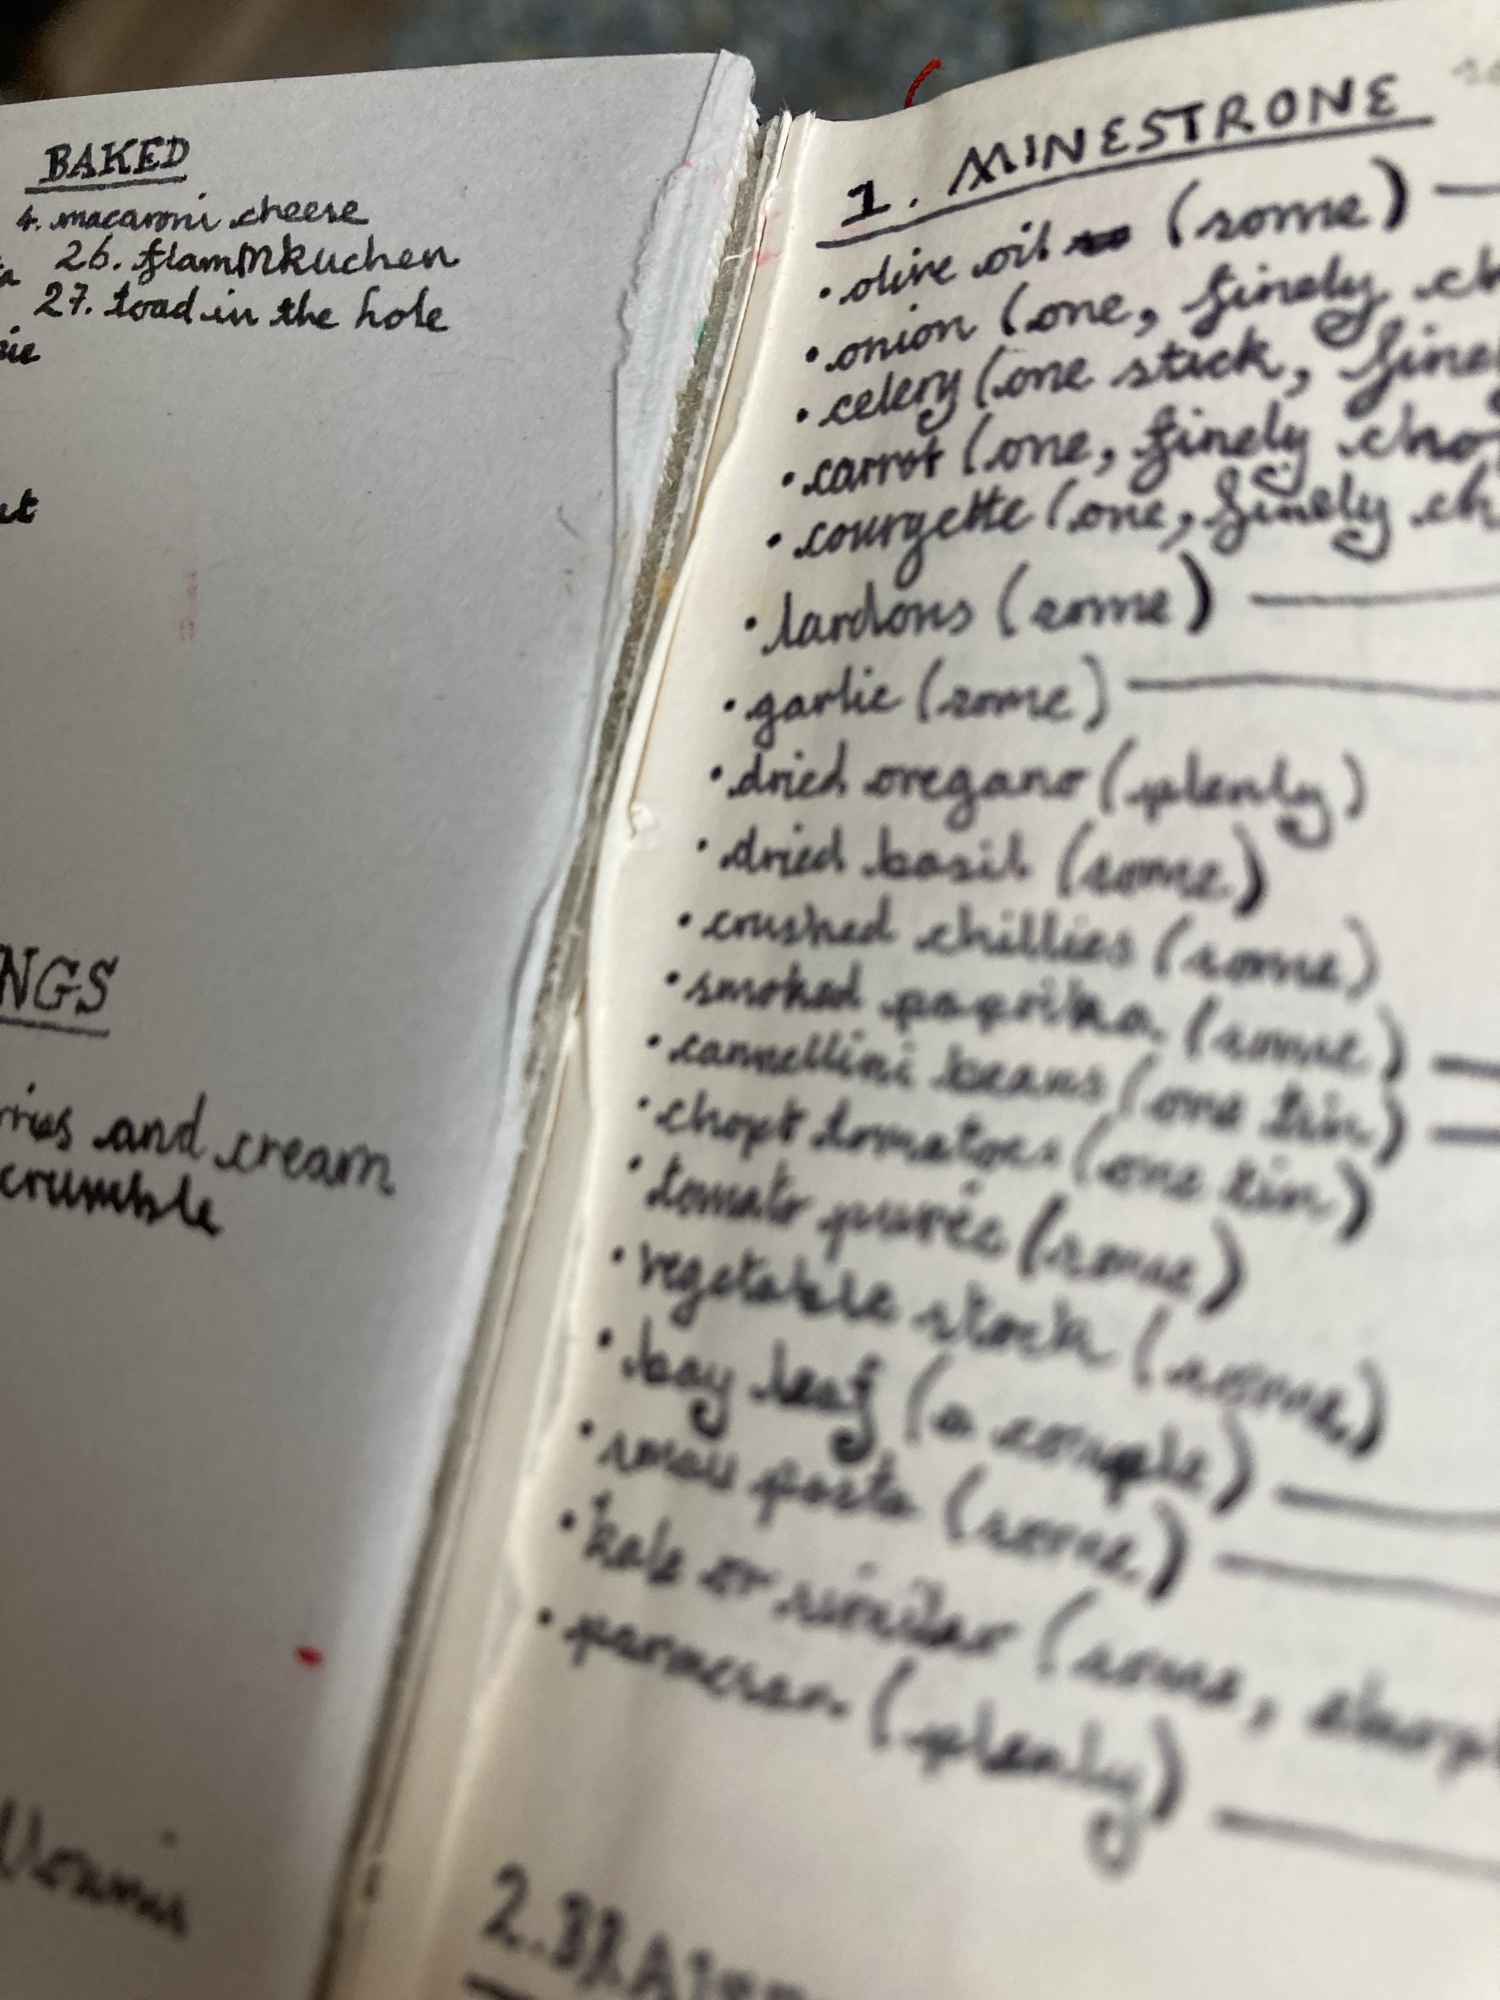 BAKED
4. macaroni cheese
26. flammkuchen
27. toad in the hole
NGS
and cream
crumble
1. MINESTRONE
• olive oil (some)
• onion (one, finely ch
• celery (one stick, fine
• carrot (one, finely cho
• courgette (one, finely ch
• lardons (some)
• garlic (some)
• dried oregano (plenty)
• dried basil (some)
• crushed chillies (some)
• smoked paprika (some)
• cannellini beans (one tin)
• chopt tomatoes (one tin)
• tomato purée (some)
• vegetable stock (some)
• bay leaf (a couple)
• small pasta (some)
• kale or similar (some,
• parmesan (plenty)
2.